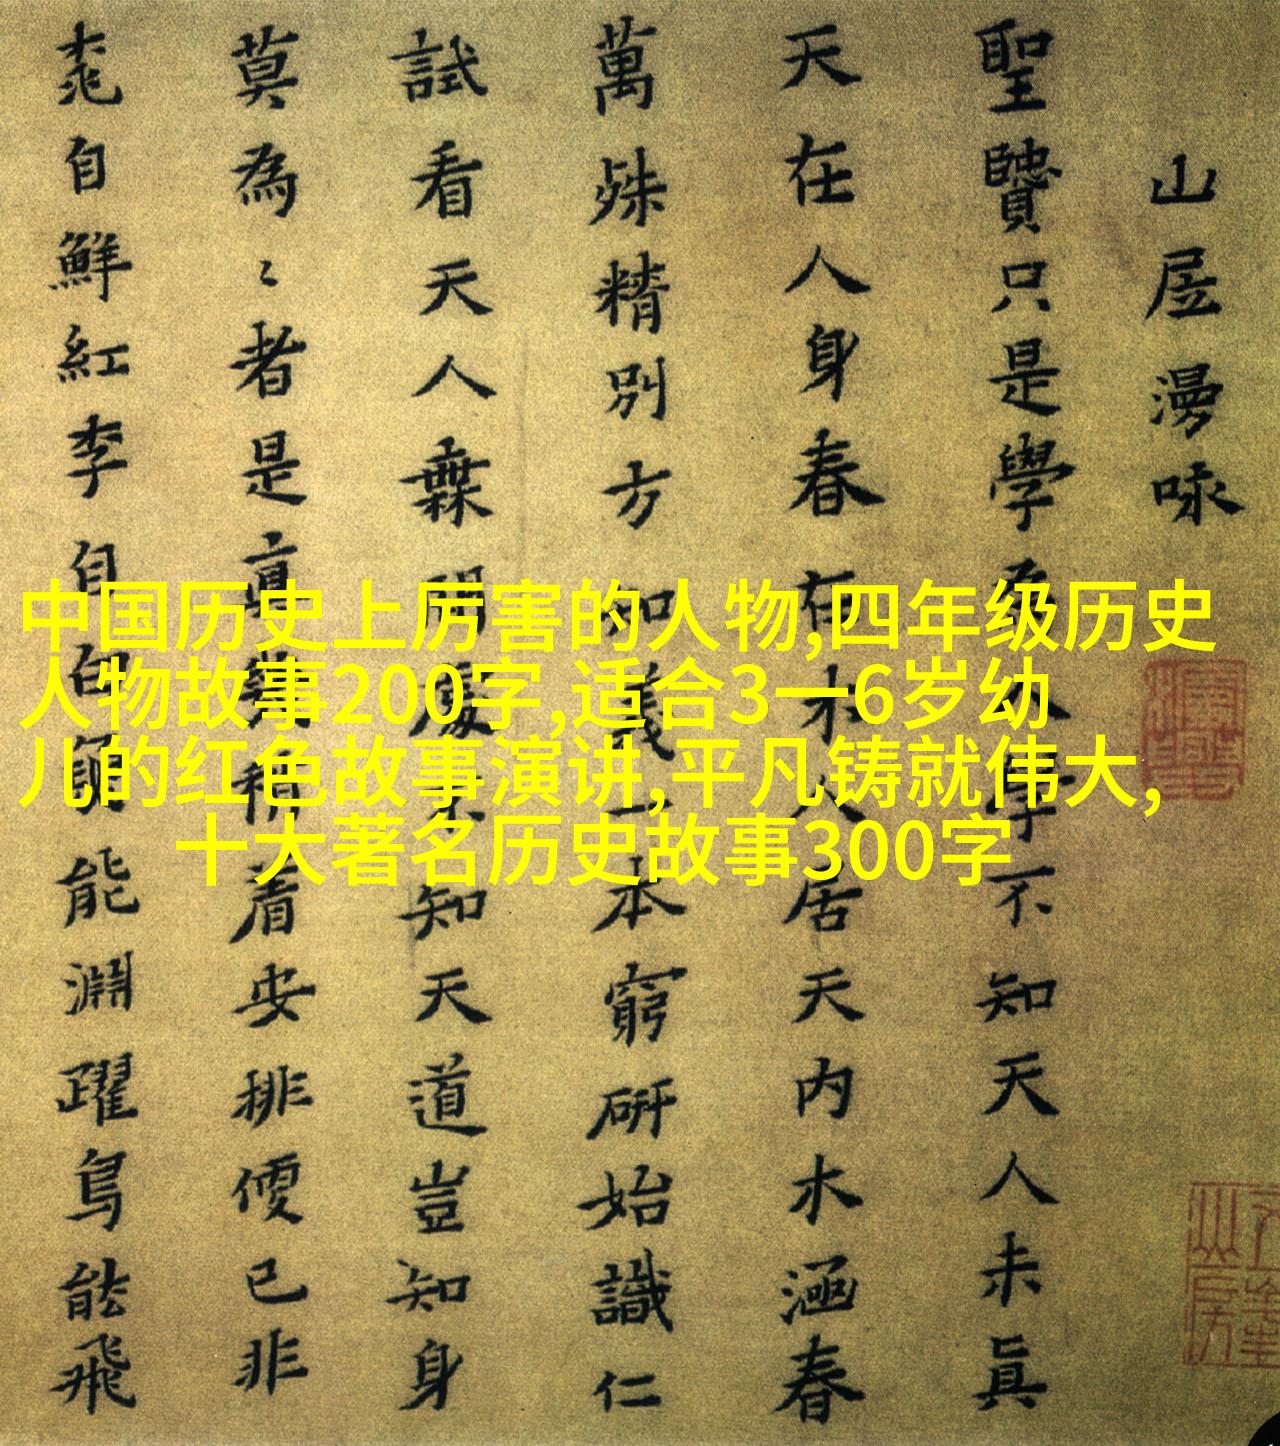 山居漫咏
聖賢只是學人學不知天人未眞
天在人身春在木人居天内木涵春
萬殊精別方知義一本窮研始識仁
試看天人無間處不知天道豈知身
莫為〻者是眞機稍着安排便已非
桃自鮮紅李自白魚能淵躍鳥能飛
中国历史上厉害的人物,四年级历史
人物故事200字,适合3一6岁幼
儿的红色故事演讲,平凡铸就伟大,
十大著名历史故事300字